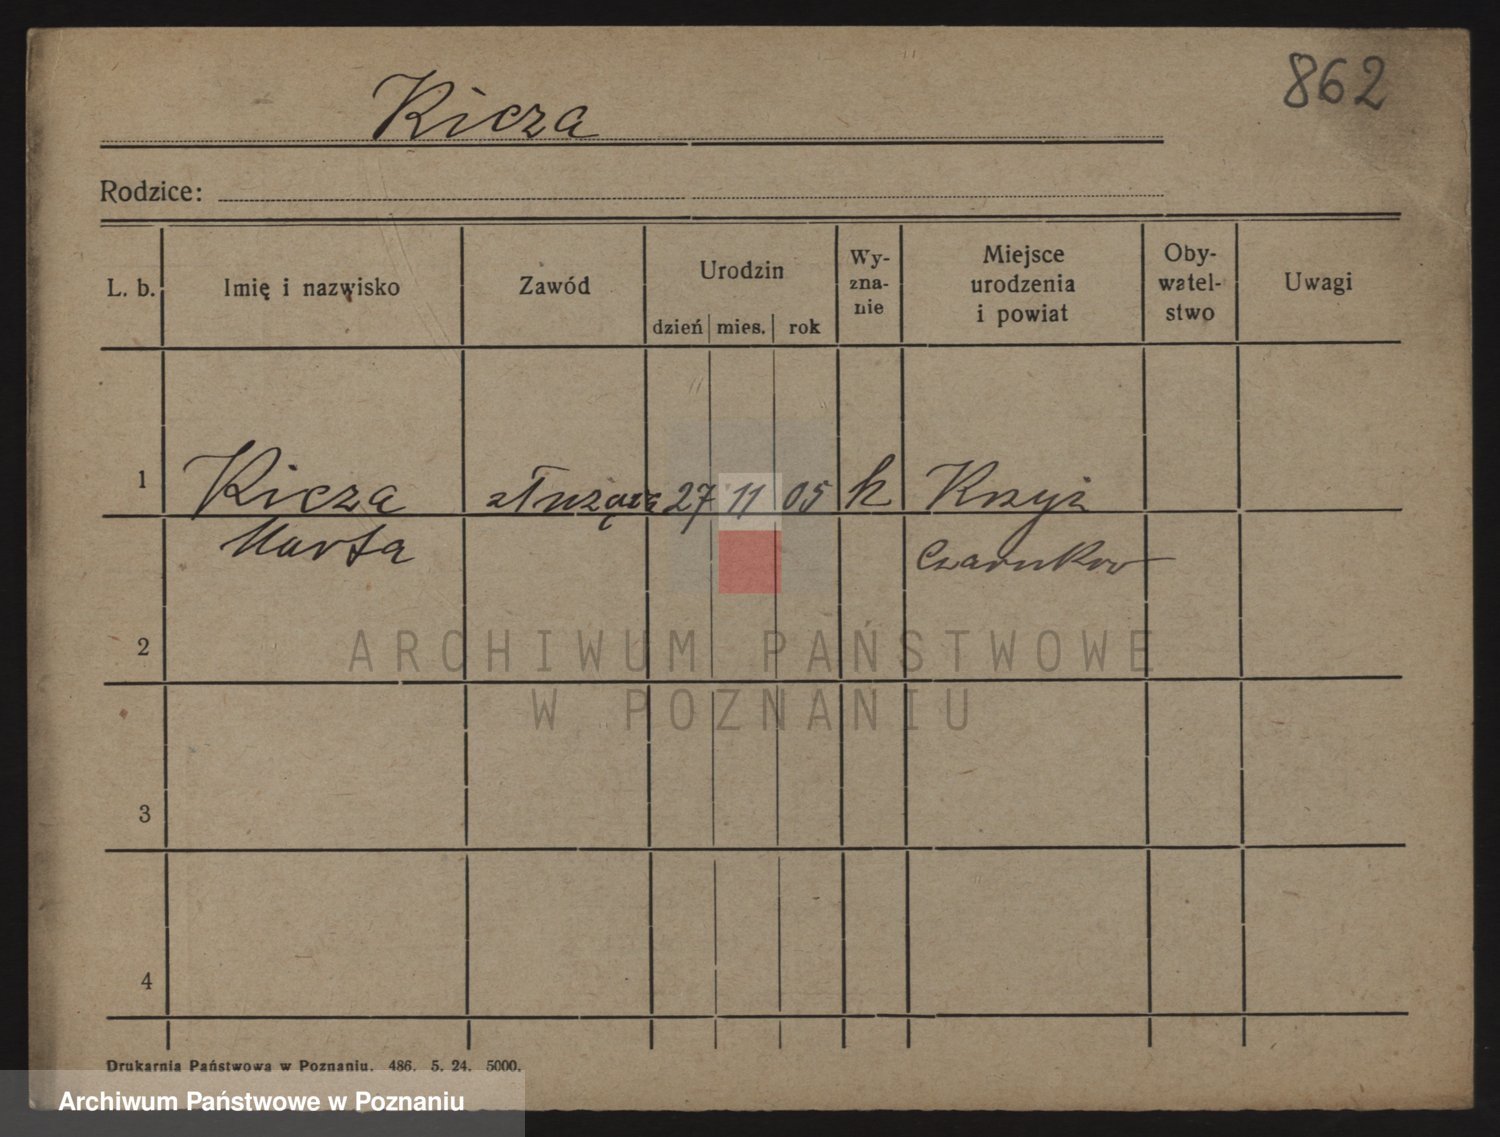 862
Kicza
Rodzice:
L. b. Imię i nazwisko Zawód Urodzin dzień mies. rok Wy-zna-nie Miejsce urodzenia i powiat Oby-watel-stwo Uwagi
1 Kicza służąca 27 11 05 k Krzyż
Marta Czarnków
2
3
4
Drukarnia Państwowa w Poznaniu. 486. 5. 24. 5000.
ARCHIWUM PAŃSTWOWE
W POZNANIU
Archiwum Państwowe w Poznaniu